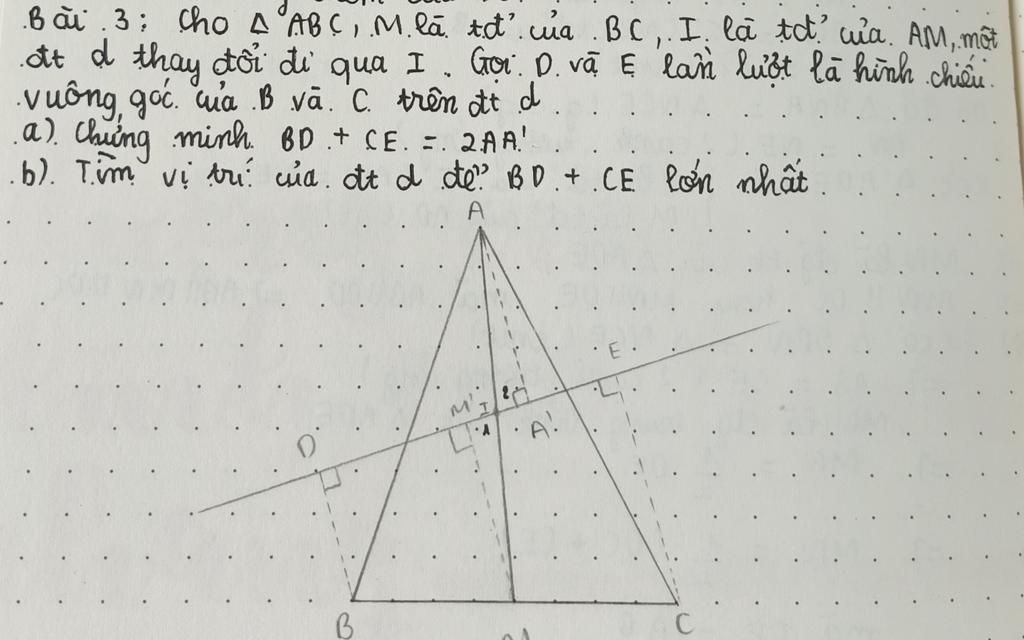 Bài 3: Cho Δ ABC, M là tđ của BC, I là tđ của AM, một
đt d thay đổi đi qua I. Gọi D và E lần lượt là hình chiếu
vuông góc của B và C trên đt d
a). Chứng minh BD + CE = 2AA'
b). Tìm vị trí của đt d để BD + CE lớn nhất
A
E
M' I 2
1 A'
D
B
M
C